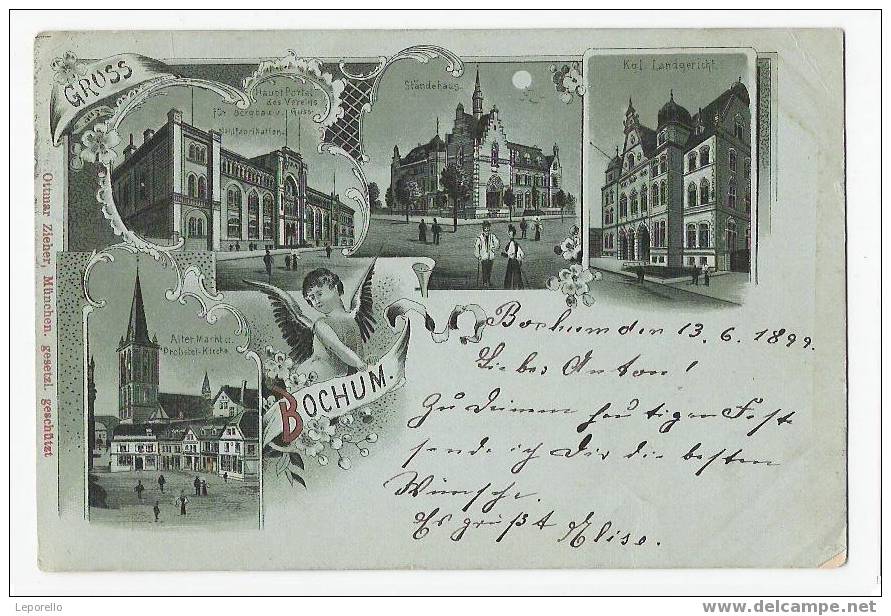 GRUSS
Haupt Portal
des Vereins
für Bergbau u. Guss-
stahlfabrikation.
Ständehaus.
Kgl. Landgericht.
Ottmar Zieher, München. gesetzl. geschützt
Alter Markt u.
Probstei-Kirche
BOCHUM.
Bochum den 13. 6. 1899.
Lieber Anton!
Zu Deinem heutigen Feste
sende ich Dir die besten
Wünsche.
Es grüßt Elise.
Leporello
www.delcampe.net